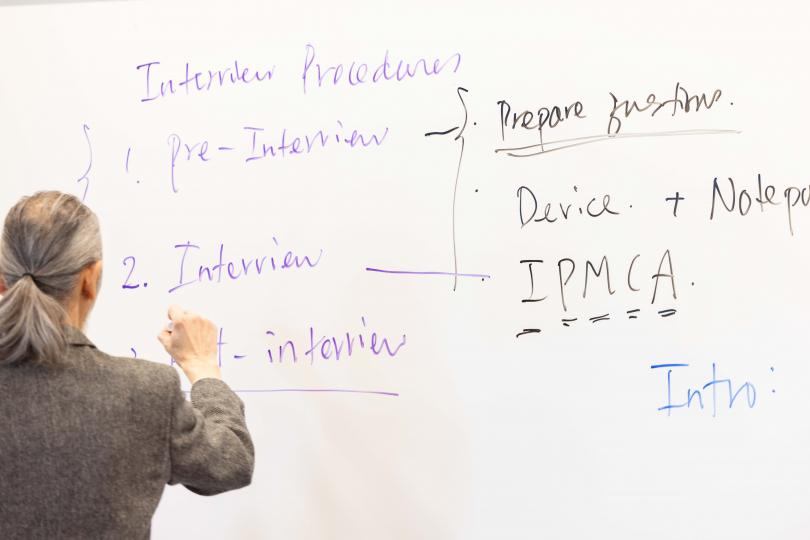 Interview Procedures
1. Pre-Interview
2. Interview
t-interview
Prepare questions.
Device. + Notepa
IPMCA.
Intro: